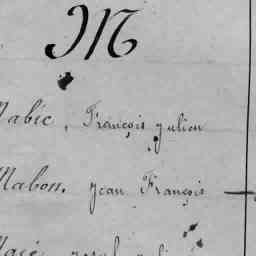 M
Mabic, François julien
Mabon. jean François —